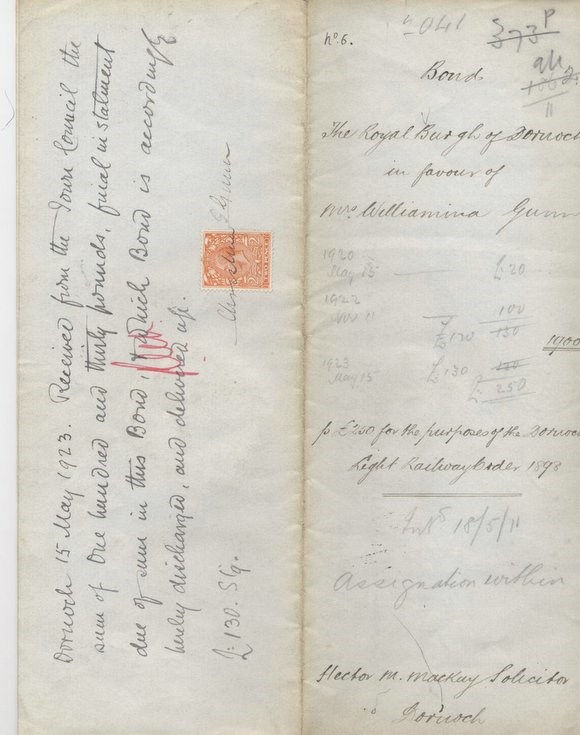 Dornoch 15 May 1923. Received from the Town Council the
sum of One hundred and thirty pounds, final instalment
due of sum in this Bond, which Bond is accordingly
hereby discharged, and delivered up.
£130. Stg.
Gunn
No. 6.
2041
373 P
Bond
The Royal Burgh of Dornoch
in favour of
Mrs Williamina Gunn
1920
May 15 £20
1922
100
£120 130
1900
1923
May 15 £130
£ 250
fr £250 for the purposes of the Dornoch
Light Railway Order 1898
18/5/11
Assignation within
Hector M. Mackay Solicitor
Dornoch